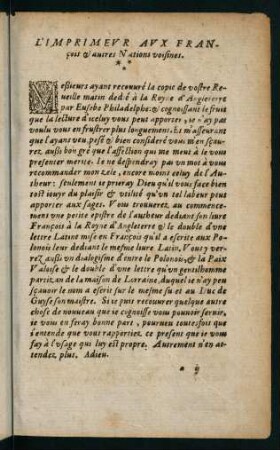 L'IMPRIMEVR AVX FRAN-
çois & autres Nations voisines.
* * *
MEsieurs ayant recouuré la copie de vostre Re-
ueille matin dedié à la Royne d'Angleterre
par Eusebe Philadelphe: & cognoissant le fruit
que la lecture d'iceluy vous peut apporter, ie n'ay pas
voulu vous en frustrer plus longuement. Et m'asseurant
que l'ayant veu, pesé & bien consideré vous m'en sçau-
rez, aussi bon gré que l'affection qui me meut à le vous
presenter merite. Ie ne despendray pas vn mot à vous
recommander mon zele, encore moins celuy de l'Au-
theur: seulement ie prieray Dieu qu'il vous face bien
tost iouyr du plaisir & vtilité qu'vn tel labeur peut
apporter aux sages. Vous trouuerez au commence-
ment vne petite epistre de l'autheur dediant son liure
François à la Royne d'Angleterre & le double d'vne
lettre Latine mise en François qu'il a escrite aux Polo-
nois leur dediant le mesme liure Latin. Vous y verrez
aussi vn dialogisme d'entre le Polonois, & la Paix
Valoise & le double d'vne lettre qu'vn gentilhomme
partizan de la maison de Lorraine, duquel ie n'ay peu
sçauoir le nom a escrite sur le mesme suiet au Duc de
Guyse son maistre. Si ie puis recouurer quelque autre
chose de nouueau que ie cognoisse vous pouuoir seruir,
ie vous en feray bonne part, pourueu toutesfois que
i'entende que vous rapportiez ce present que ie vous
fay à l'vsage qui luy est propre. Autrement n'en at-
tendez plus. Adieu.